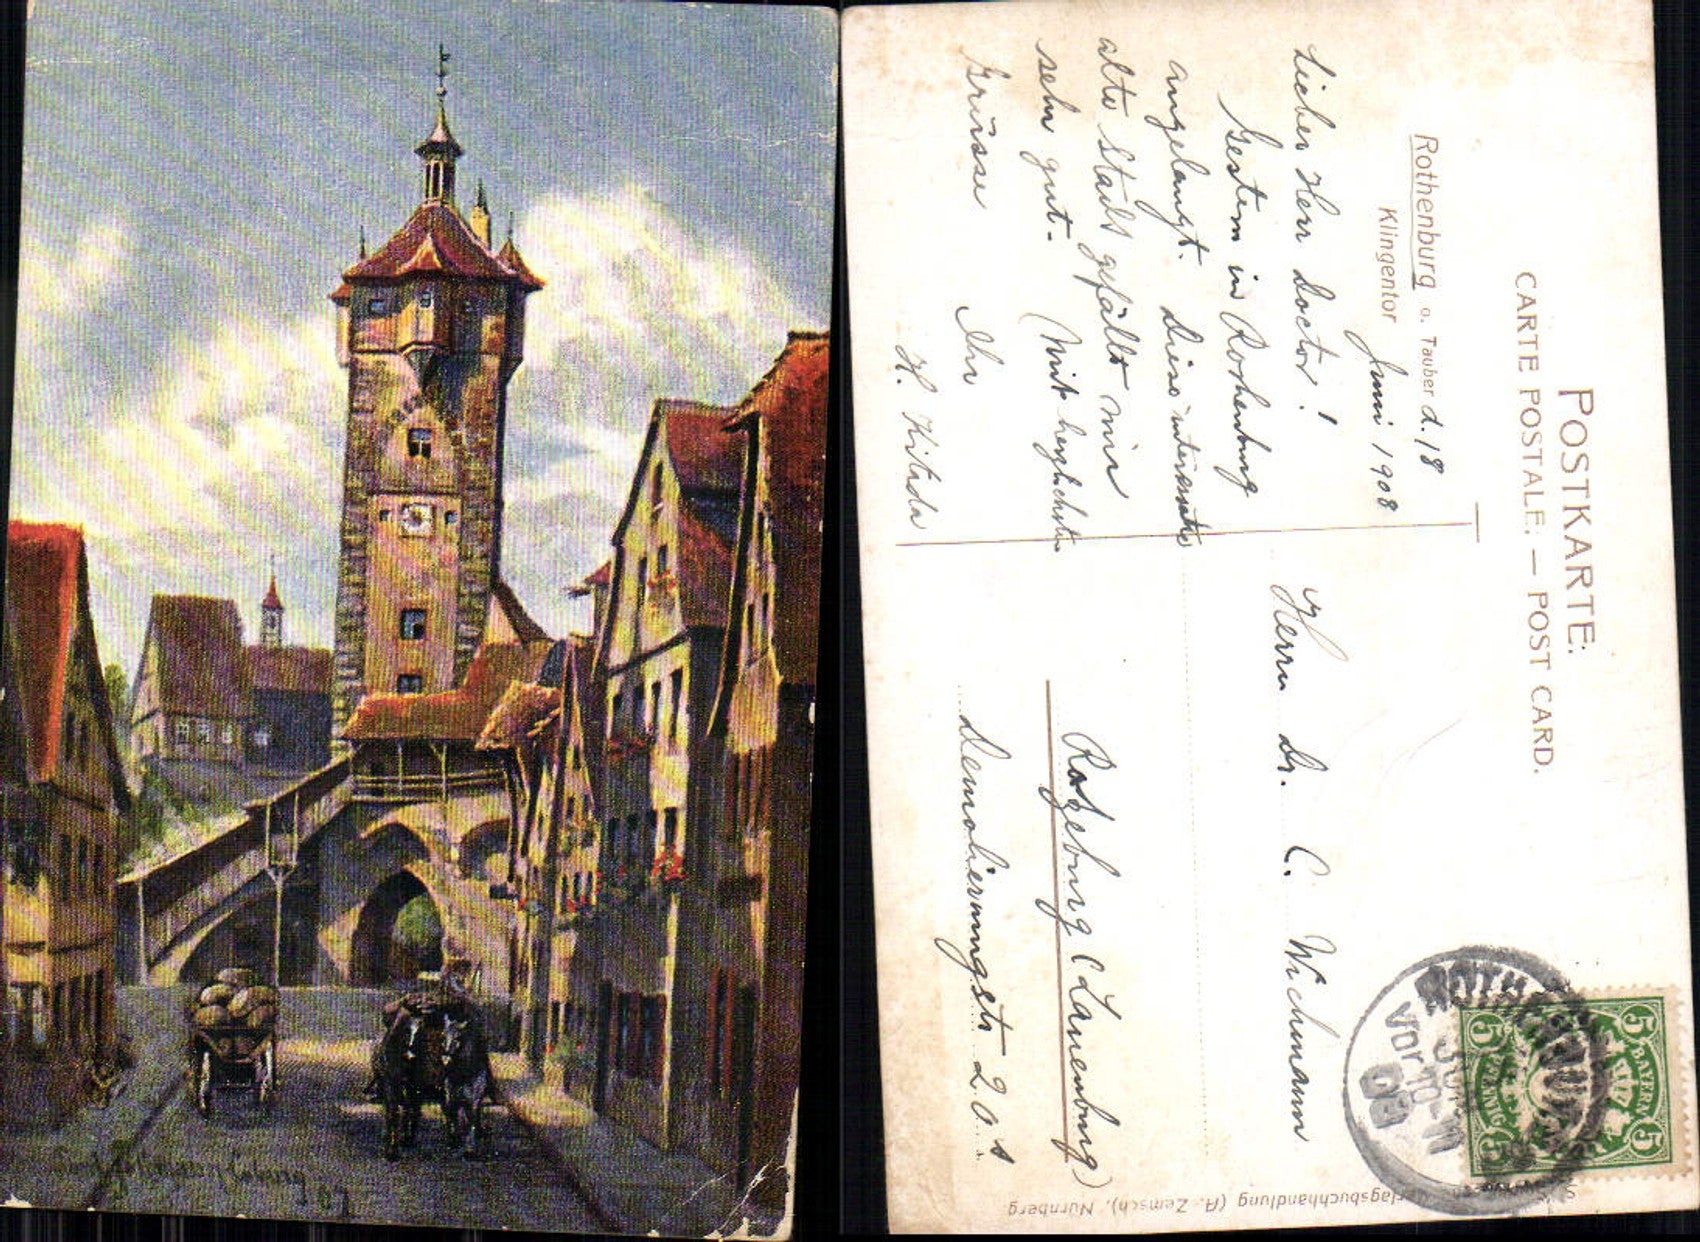 POSTKARTE.
CARTE POSTALE. — POST CARD.
Rothenburg o. Tauber d. 18
Klingentor Juni 1908
Lieber Herr Doctor!
Gestern in Rothenburg
angelangt. Diese interessante
alte Stadt gefällt mir
sehr gut. Mit herzlichsten
Grüsse Ihr
H. Kitada
Herrn Dr. C. Wichmann
Ratzeburg (Lauenburg)
Demolierungstr. 20
BAYERN
5 5
5 5
ROTHENBURG
VORM
08
Verlagsbuchhandlung (A. Zemsch), Nürnberg